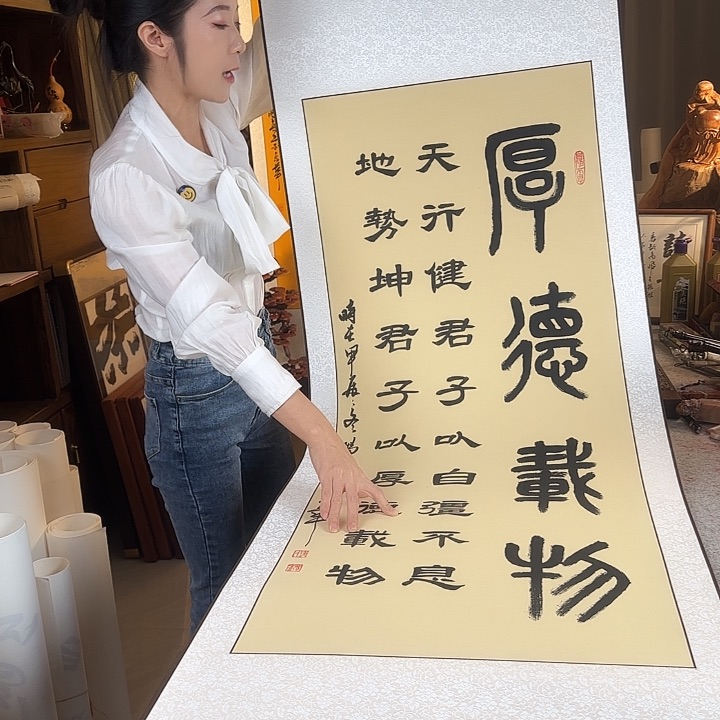 厚德載物
天行健君子以自彊不息
地勢坤君子以厚德載物
時在甲辰冬